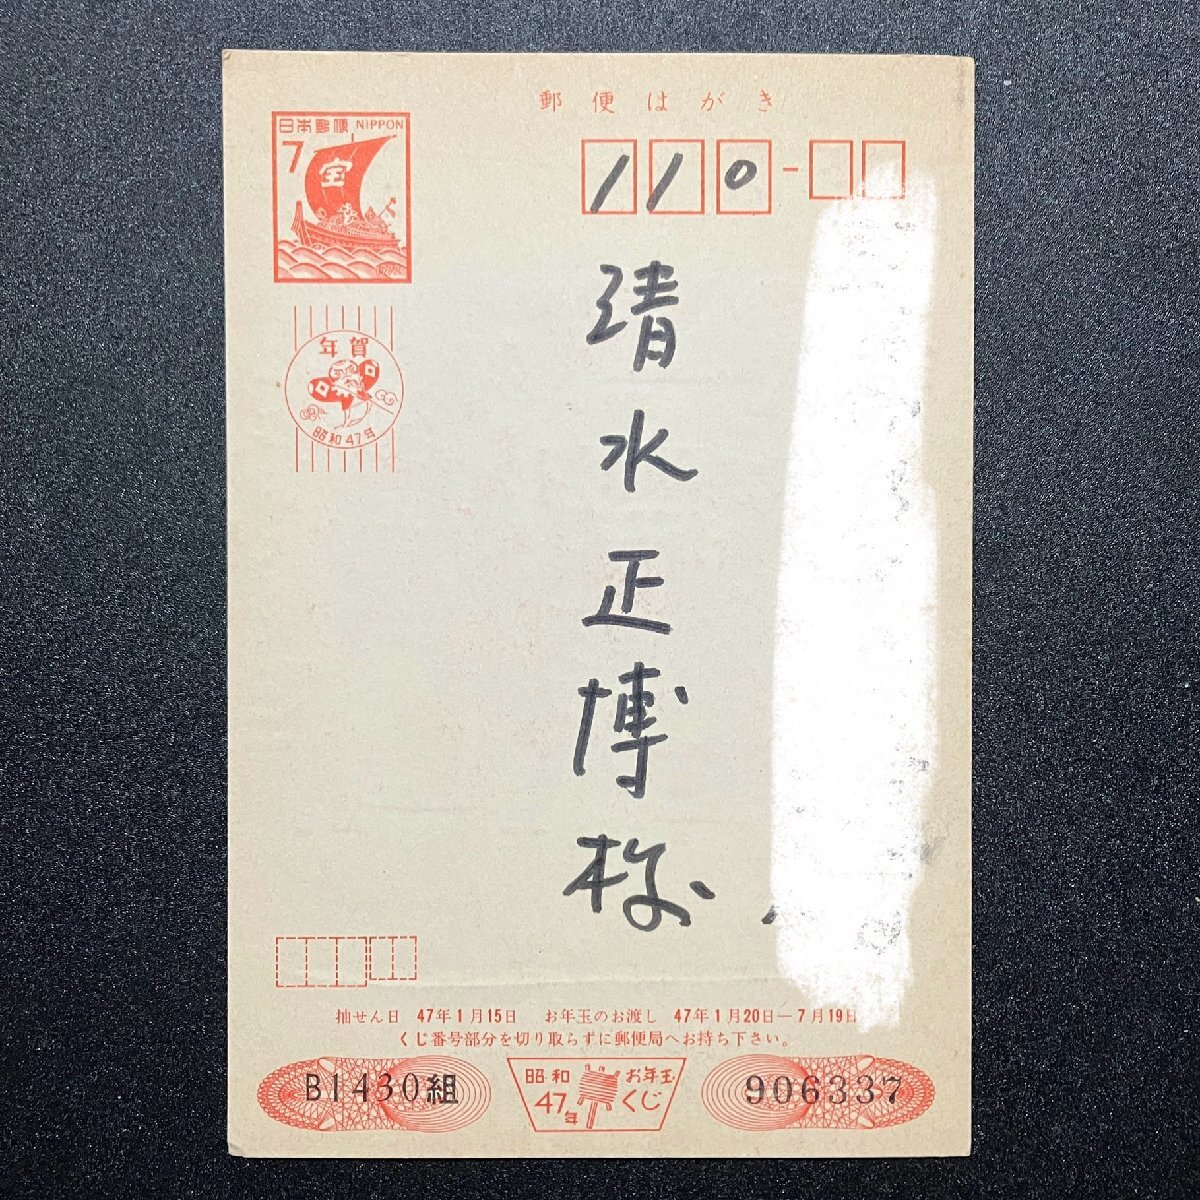 郵便はがき
日本郵便 NIPPON
7
宝
1972
110-
年賀
昭和47年
清水正博様
抽せん日 47年1月15日 お年玉のお渡し 47年1月20日—7月19日
くじ番号部分を切り取らずに郵便局へお持ち下さい。
B1430組
昭和47年
お年玉くじ
906337